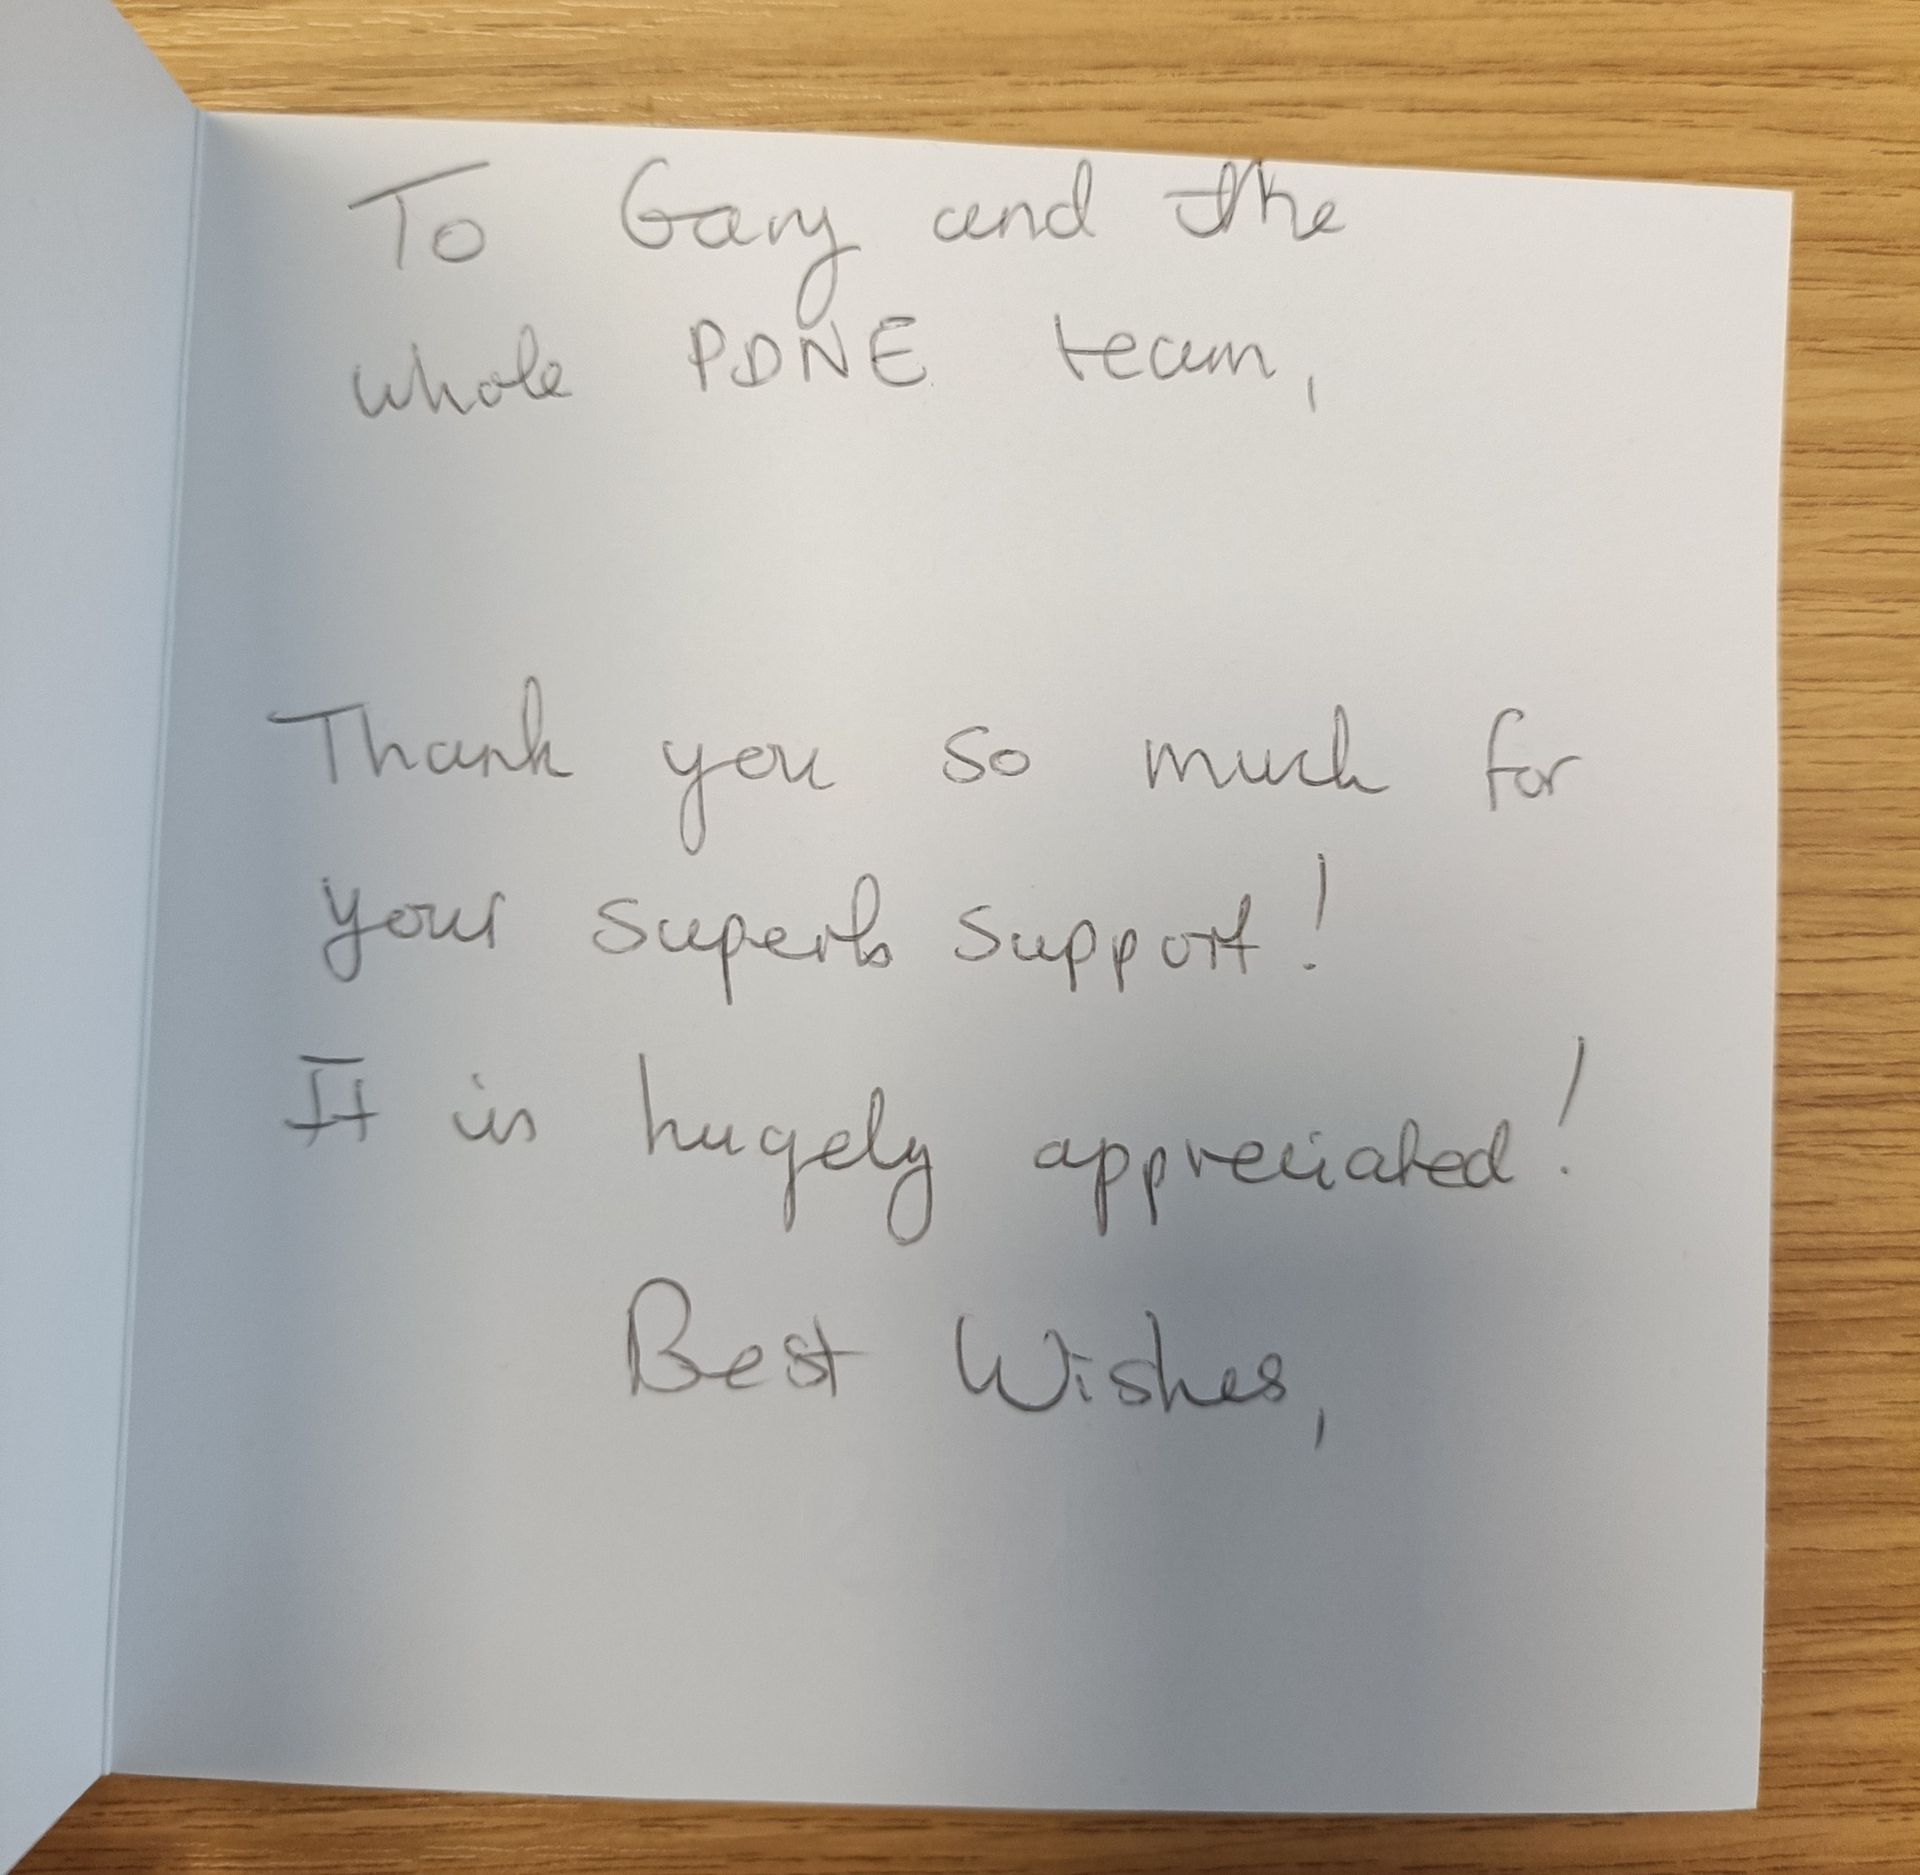 To Gary and the
whole PDNE team,
Thank you so much for
your superb support!
It is hugely appreciated!
Best Wishes,